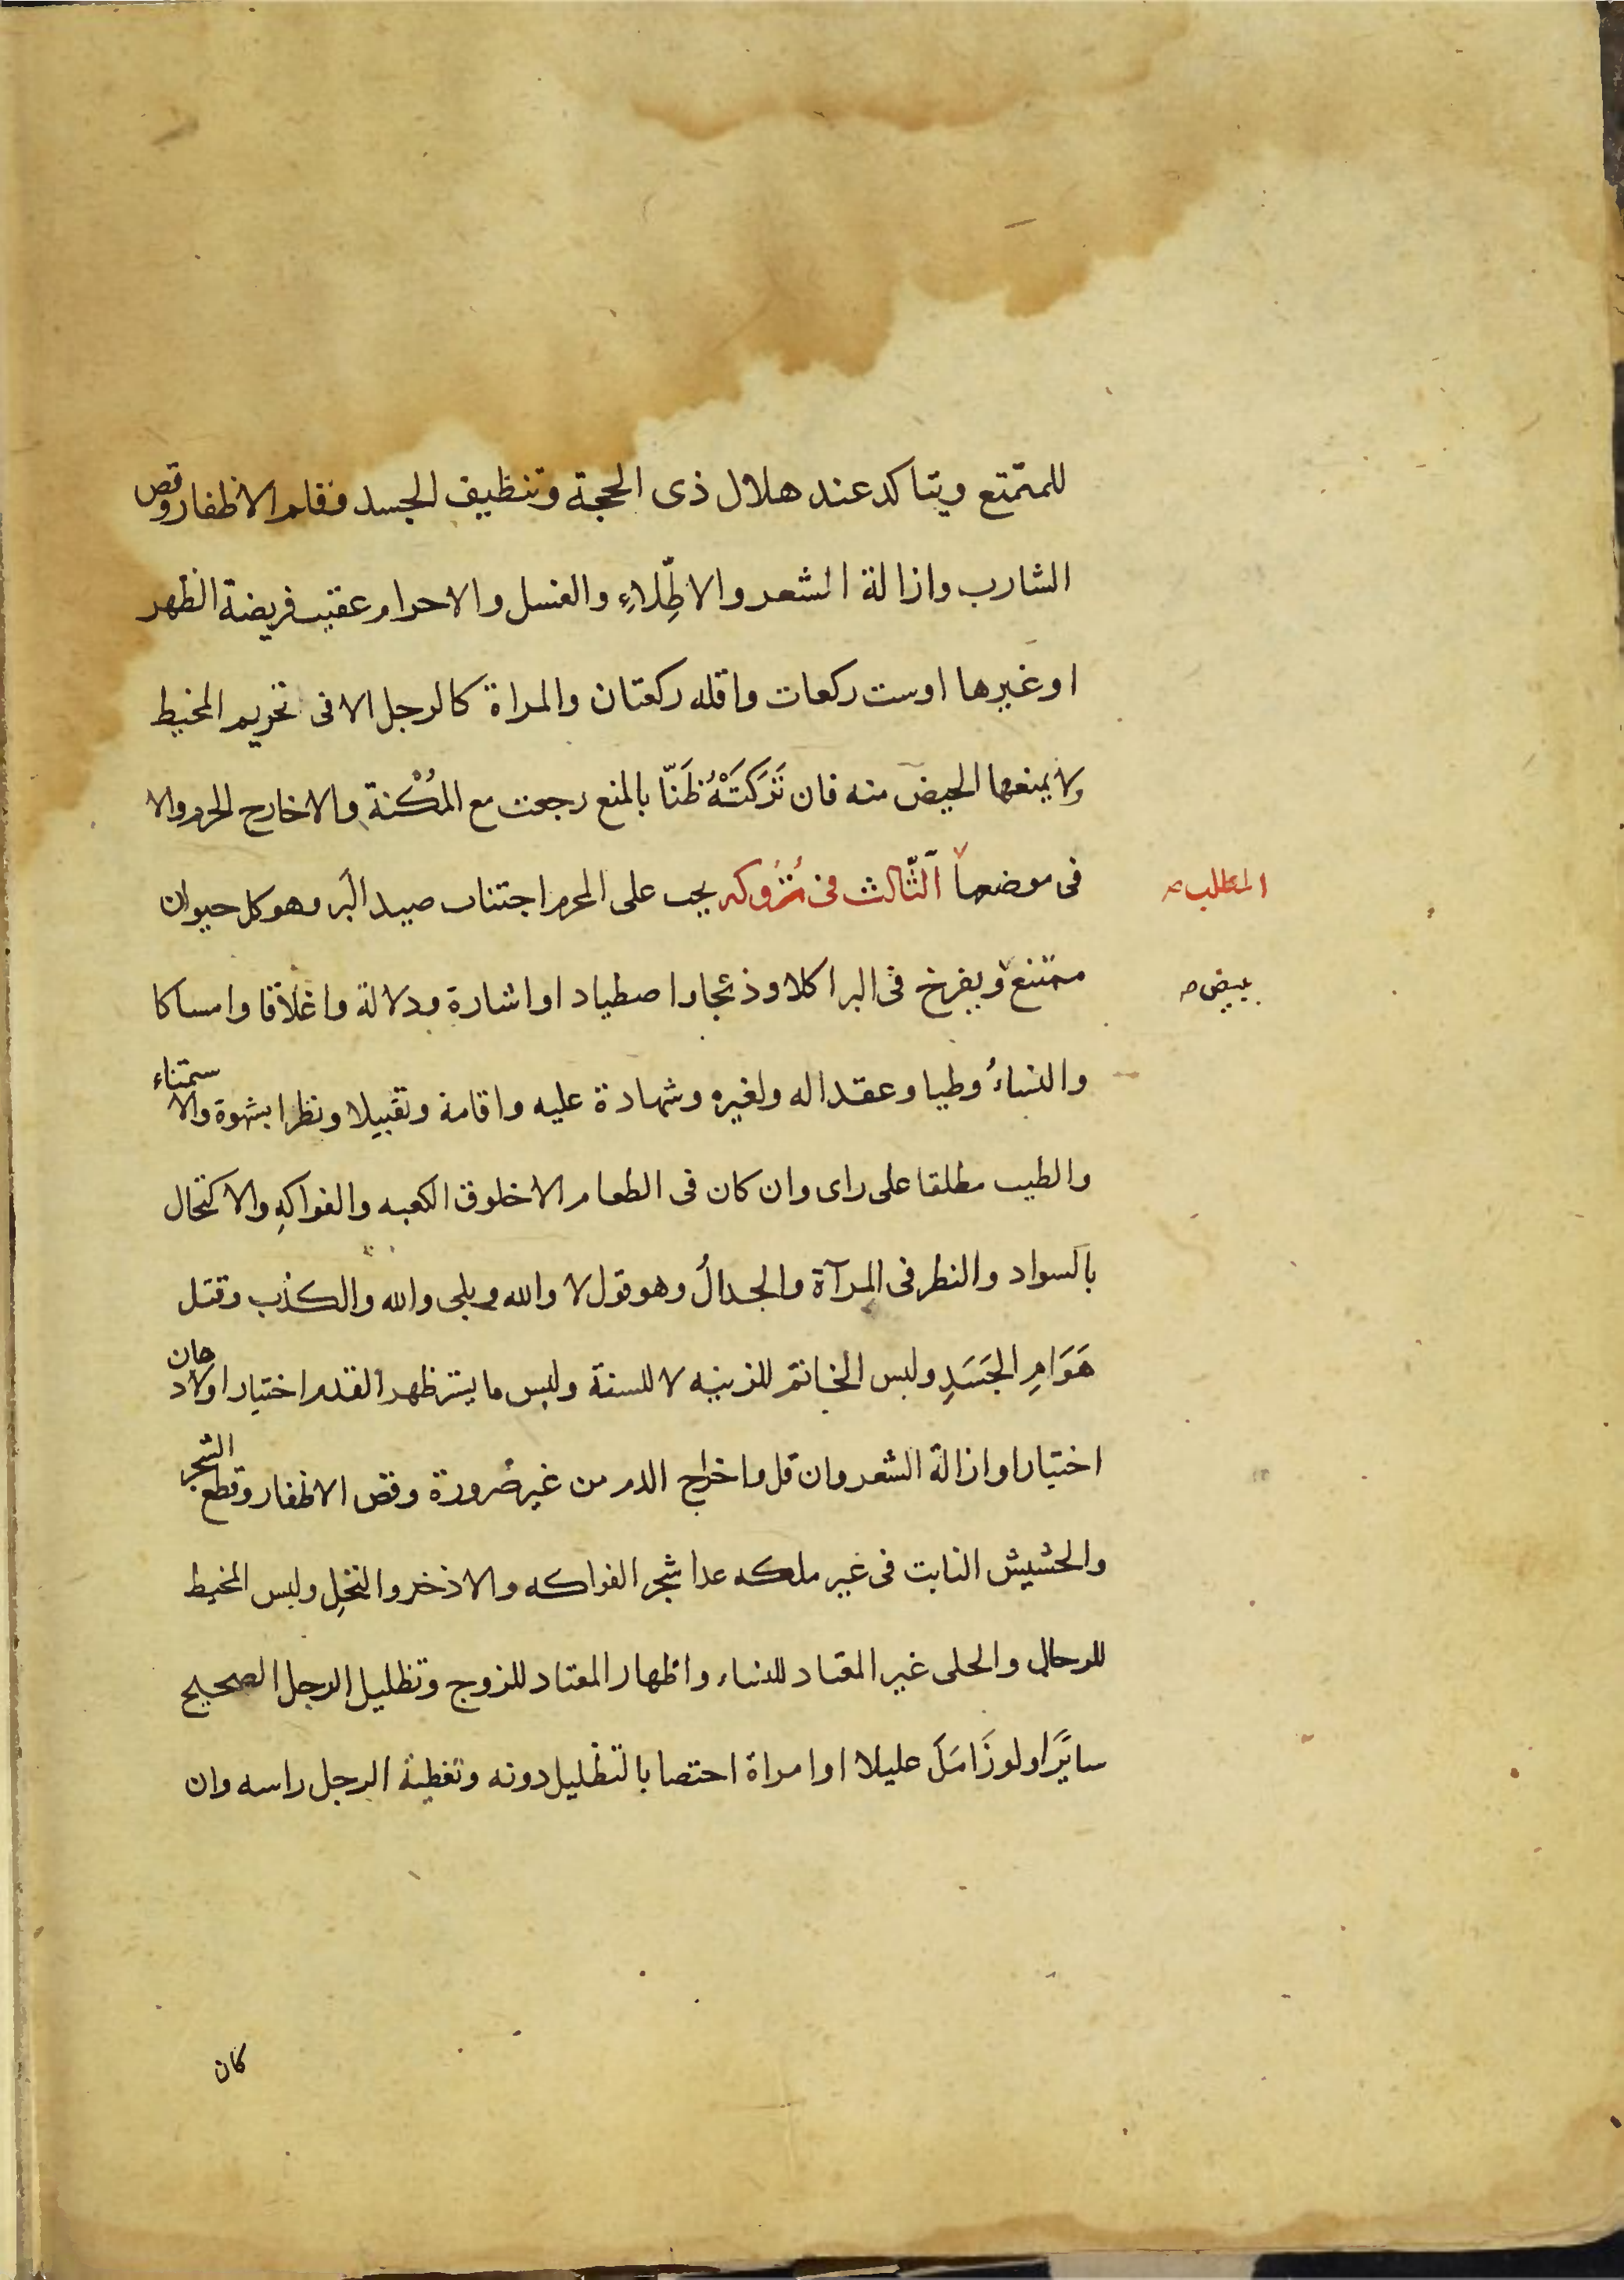 للمتمتع ويتاكد عند هلال ذى الحجة وتنظيف الجسد وقلم الاظفار وقص
الشارب وازالة الشعر والاطِّلاءِ والغسل والاحرام عقيب فريضة الظهر
او غيرها او ست ركعات واقله ركعتان والمراة كالرجل الا فى تحريم المخيط
ولا يمنعها الحيض منه فان تَرَكَتْهُ ظَنّا بالمنع رجعت مع المُكْنة والا خارج الحرم والا
فى موضعها الثّالث فى تُرُوكه يجب على المحرم اجتناب صيد البر وهو كل حيوان
المطلب صح
ممتنع ويفرخ فى البر اكلا وذبحا واصطياد او اشارة ودلالة واغلاقا وامساكا
يبيض صح
والنساءُ وطيا وعقدا له ولغيره وشهادة عليه واقامة وتقبيلا ونظرا بشهوة والاستمناء
والطيب مطلقا على راى وان كان فى الطعام الا خلوق الكعبه والفواكهِ والاكتحال
بالسواد والنظر فى المرآة والجدالُ وهو قول لا والله وبلى والله والكذب وقتل
هَوَامِ الجَسَدِ ولبس الخاتم للزينه لا للسنة ولبس ما يستر ظهر القدم اختيارا والادهان
اختيارا وازالة الشعر وان قل واخراج الدم من غير ضرورة وقص الاظفار وقطع الشجر
والحشيش النابت فى غير ملكه عدا شجر الفواكه والاذخر والنخلِ ولبس المخيط
للرجال والحلى غير المعتاد للنساء واظهار المعتاد للزوج وتظليل الرجل الصحيح
سايًرا ولو زَامَلَ عليلا او امراة اختصا بالتظليل دونه وتغطية الرجل راسه وان
كان